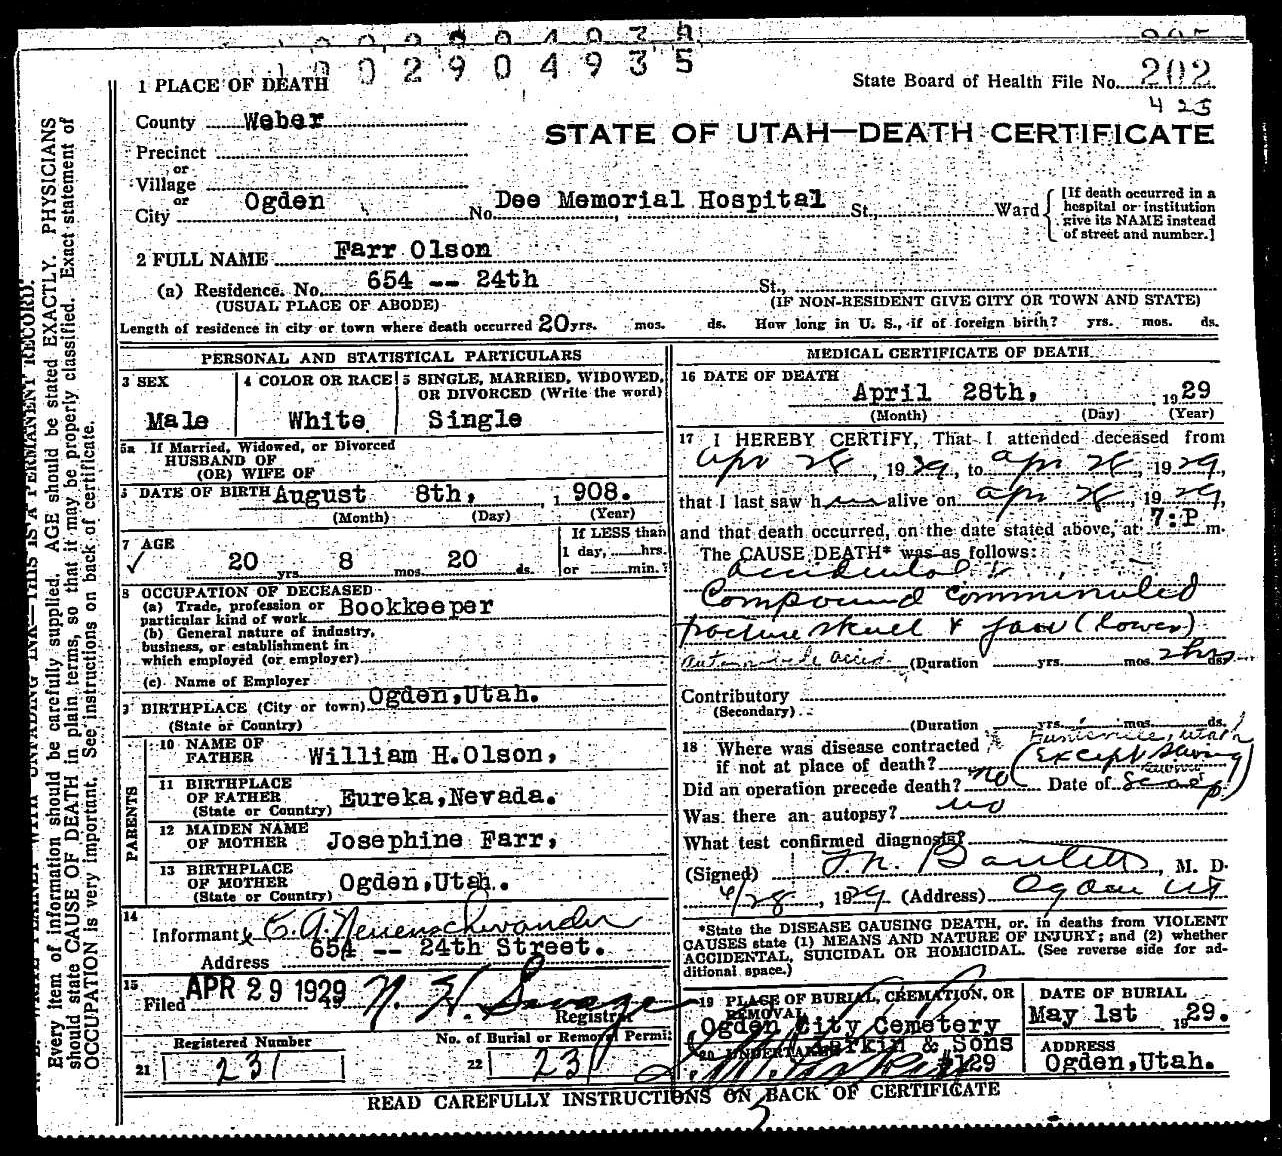 1002904935
1 PLACE OF DEATH
State Board of Health File No. 202
425
County Weber
STATE OF UTAH—DEATH CERTIFICATE
Precinct
or
Village
or
City Ogden No. Dee Memorial Hospital St., Ward
[If death occurred in a
hospital or institution
give its NAME instead
of street and number.]
2 FULL NAME Farr Olson
(a) Residence. No. 654 -- 24th St.,
(USUAL PLACE OF ABODE) (IF NON-RESIDENT GIVE CITY OR TOWN AND STATE)
Length of residence in city or town where death occurred 20 yrs. mos. ds. How long in U. S., if of foreign birth? yrs. mos. ds.
PERSONAL AND STATISTICAL PARTICULARS
3 SEX
Male
4 COLOR OR RACE
White
5 SINGLE, MARRIED, WIDOWED,
OR DIVORCED (Write the word)
Single
5a If Married, Widowed, or Divorced
HUSBAND OF
(OR) WIFE OF
6 DATE OF BIRTH August 8th, 1908.
(Month) (Day) (Year)
7 AGE
20 yrs. 8 mos. 20 ds.
If LESS than
1 day, hrs.
or min.?
8 OCCUPATION OF DECEASED
(a) Trade, profession or
particular kind of work Bookkeeper
(b) General nature of industry,
business, or establishment in
which employed (or employer)
(c) Name of Employer
9 BIRTHPLACE (City or town) Ogden,Utah.
(State or Country)
PARENTS
10 NAME OF
FATHER William H.Olson,
11 BIRTHPLACE
OF FATHER Eureka,Nevada.
(State or Country)
12 MAIDEN NAME
OF MOTHER Josephine Farr,
13 BIRTHPLACE
OF MOTHER Ogden,Utah.
(State or Country)
14
Informant C. A. Neuenschwander
Address 654 -- 24th Street.
15
Filed APR 29 1929 19 N. H. Savage
Registrar
Registered Number
21 231
No. of Burial or Removal Permit
22 231
MEDICAL CERTIFICATE OF DEATH
16 DATE OF DEATH
April 28th, 1929
(Month) (Day) (Year)
17 I HEREBY CERTIFY, That I attended deceased from
Apr 28, 1929, to Apr 28, 1929,
that I last saw him alive on Apr 28, 1929,
and that death occurred, on the date stated above, at 7:P m.
The CAUSE DEATH* was as follows:
Accidental
Compound Comminuted
fracture skull & jaw (lower)
Automobile accid (Duration yrs. mos. 2 hrs ds.
Contributory
(Secondary)
(Duration yrs. mos. ds.
18 Where was disease contracted
if not at place of death? Huntsville, Utah
Did an operation precede death? no (Except sewing Date of Scalp)
Was there an autopsy? no
What test confirmed diagnosis?
(Signed) Bartlett, M. D.
4/28, 1929 (Address) Ogden Ut
*State the DISEASE CAUSING DEATH, or, in deaths from VIOLENT
CAUSES state (1) MEANS AND NATURE OF INJURY; and (2) whether
ACCIDENTAL, SUICIDAL OR HOMICIDAL. (See reverse side for ad-
ditional space.)
19 PLACE OF BURIAL, CREMATION, OR
REMOVAL
Ogden City Cemetery
DATE OF BURIAL
May 1st 1929.
20 UNDERTAKER Larkin & Sons
#129
ADDRESS
Ogden,Utah.
READ CAREFULLY INSTRUCTIONS ON BACK OF CERTIFICATE
N. B. WRITE PLAINLY WITH UNFADING INK—THIS IS A PERMANENT RECORD.
Every item of information should be carefully supplied. AGE should be stated EXACTLY. PHYSICIANS
should state CAUSE OF DEATH in plain terms, so that it may be properly classified. Exact statement of
OCCUPATION is very important. See instructions on back of certificate.